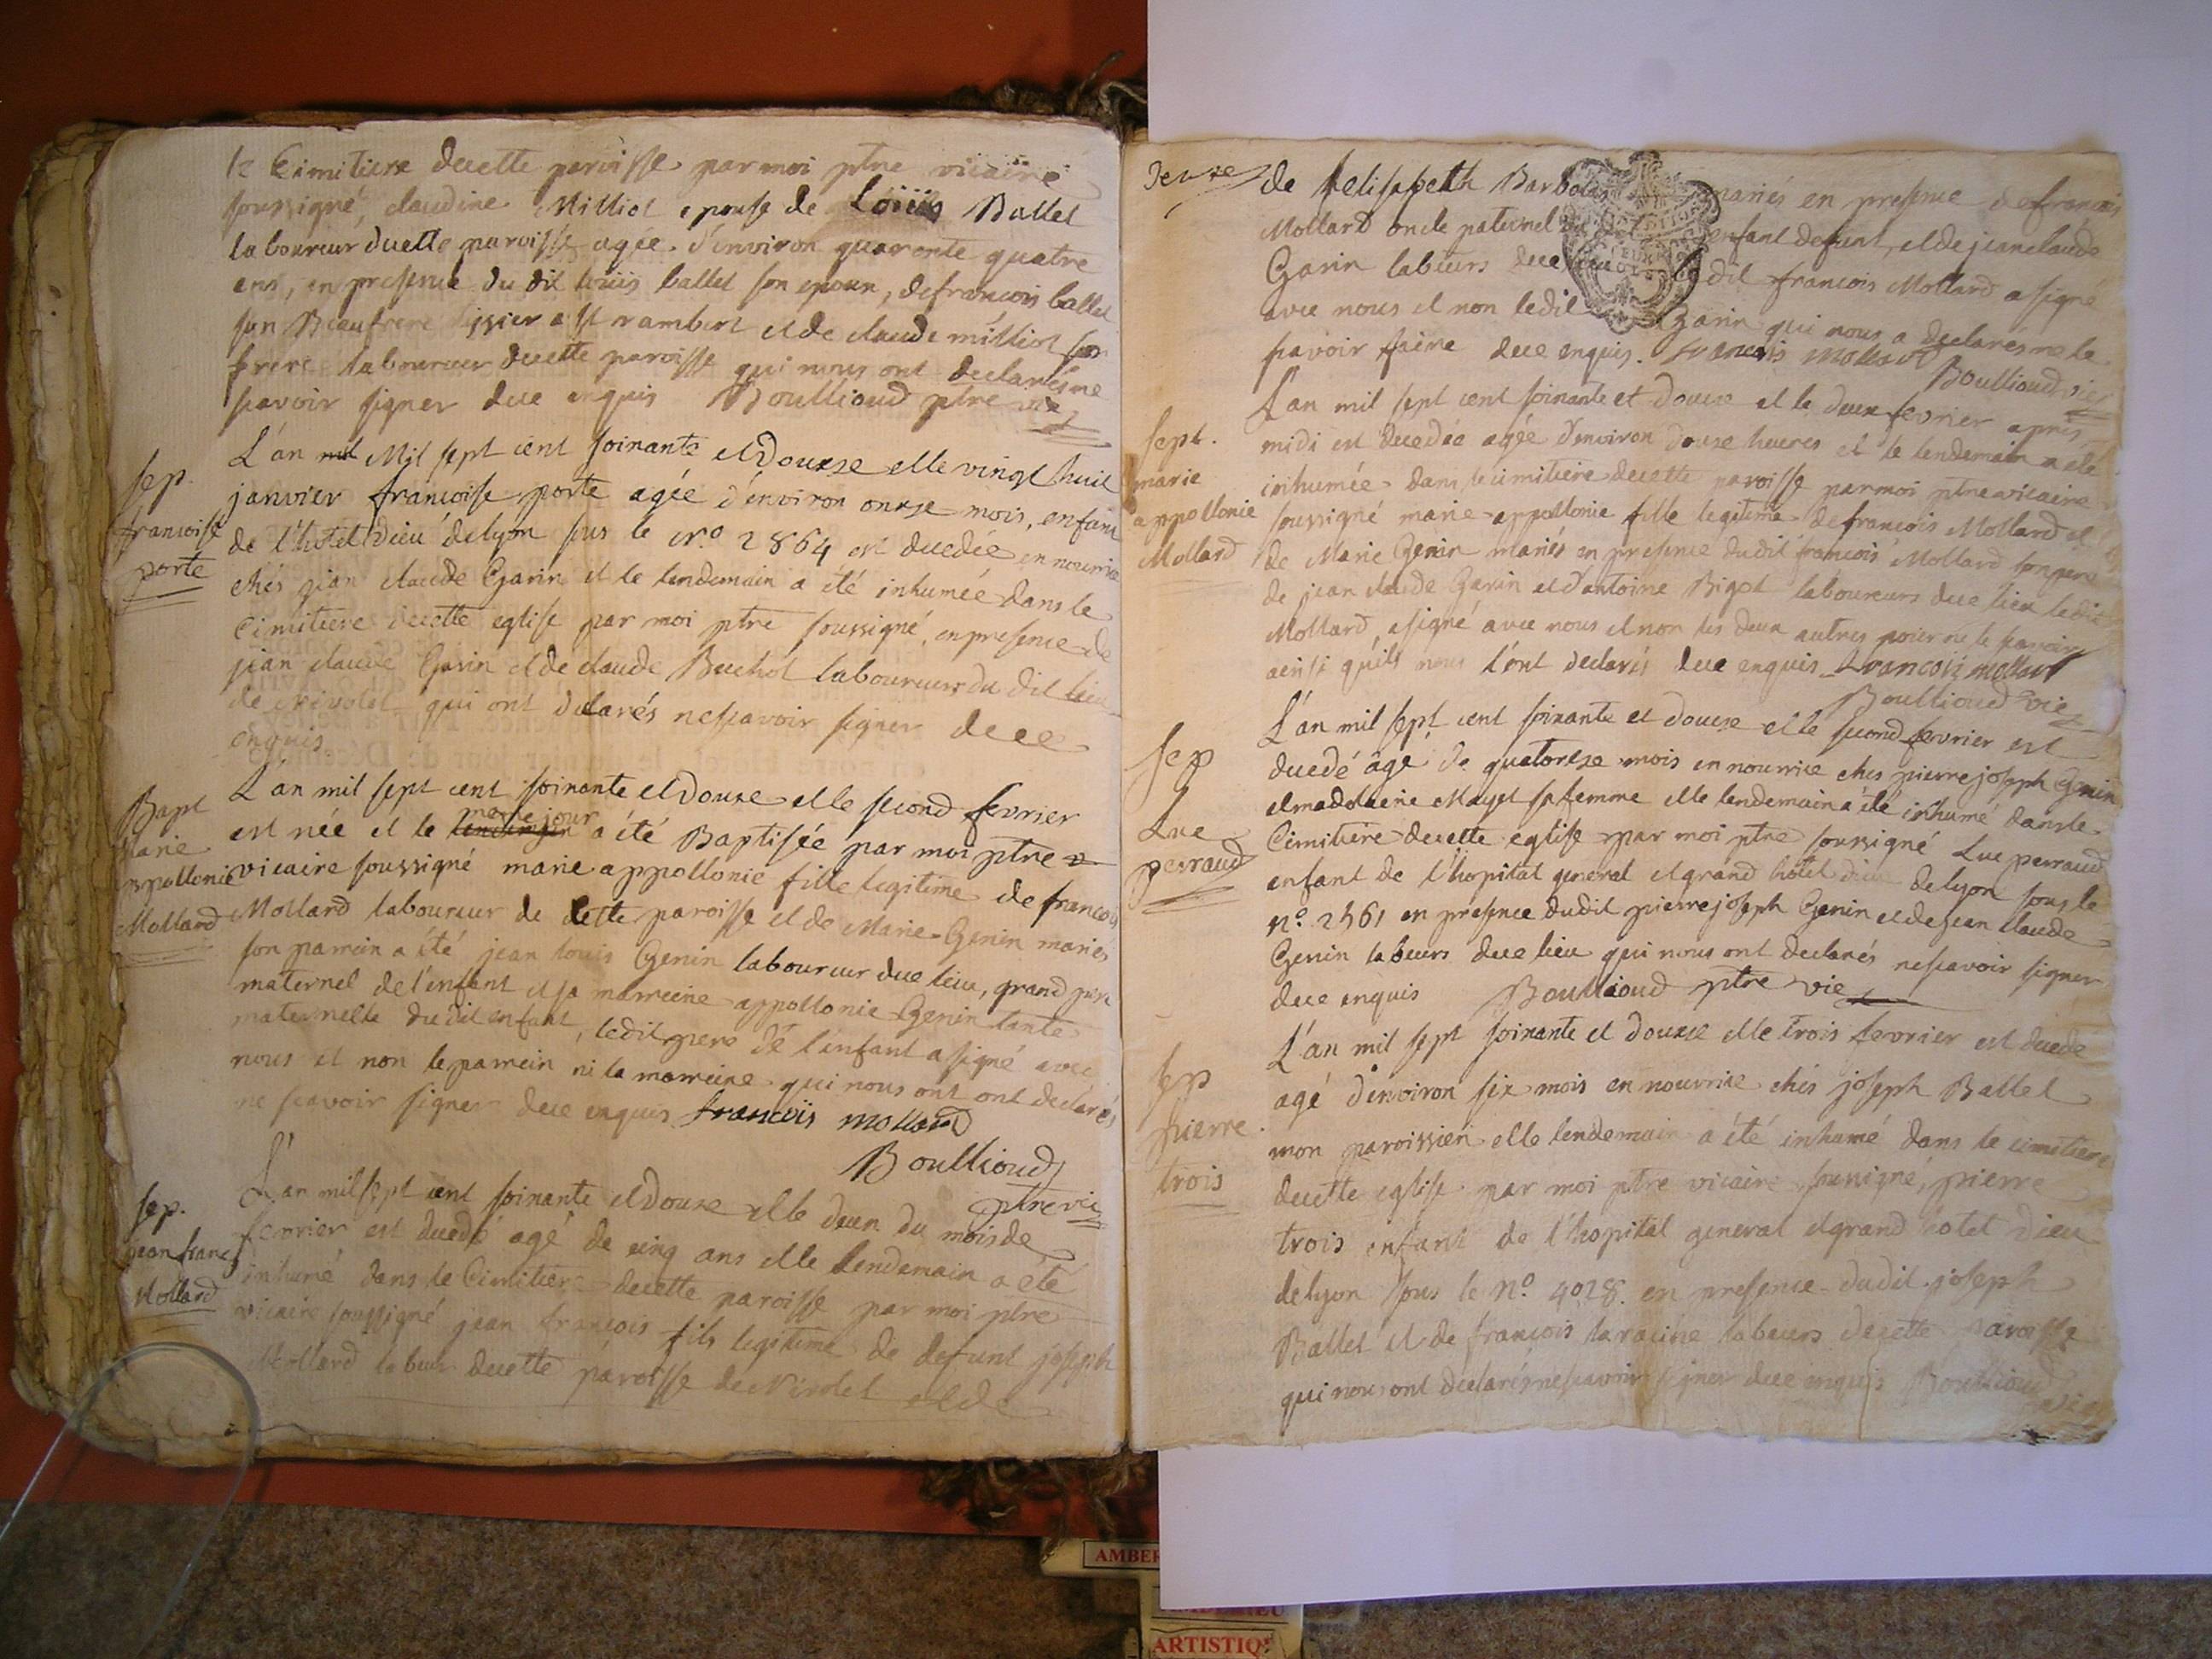 le Cimitiere decette paroisse par moi ptre vicaire
soussigné, claudine Milliot epouse de Loüis Ballet
laboureur decette paroisse agée d'environ quaronte quatre
ans, en presence du dit loüis ballet son epoux, defrançois ballet
son Beaufrere a st rambert et de claude milliot son
frere laboureur decette paroisse qui nous ont declarés ne
scavoir signer dece enquis Boullioud ptre vic
sep.
francoise
porte
L'an mil Mil sept cent soixante et Douze et le vingt huit
janvier francoise porte agée d'environ onze mois, enfant
de l'hotel Dieu delyon sous le N.º 2864 est decedée en nourrice
chés jean claude Garin et le lendemain a été inhumée dans le
Cimitiere decette eglise par moi ptre soussigné, en presence de
jean claude Garin et de claude Buchot laboureurs du dit lieu
de nivolet qui ont declarés nescavoir signer dece
enquis
Bapt
Marie
appollonie
Mollard
L'an mil sept cent soixante et Douze et le second fevrier
est née et le lendemain meme jour a été Baptisée par moi ptre
vicaire soussigné marie appollonie fille legitime de francois
Mollard laboureur de cette paroisse et de Marie Genin mariés
son parrein a été jean louis Genin laboureur duce lieu, grand pere
maternel de l'enfant et sa marreine appollonie Genin tante
maternelle du dit enfant, ledit pere de l'enfant a signé avec
nous et non le parrein ni la marreine qui nous ont ont declarés
ne scavoir signer dece enquis francoïs mollard
Boullioud
ptre vic
sep.
jean franç
Mollard
L'an mil sept cent soixante et Douze et le deux du mois de
fevrier est decedé agé de cinq ans et le lendemain a été
inhumé dans le Cimitiere decette paroisse par moi ptre
vicaire soussigné jean francois fils legitime de defunt joseph
Mollard labeur decette paroisse de Nivolet et de
deuxe
de felisabeth mariés en presence defrancois
Mollard oncle paternel enfant defunt, et de jeanclaude
Garin labeurs dece dit francois Mollard a signé
avec nous et non ledit Garin qui nous a declarés ne le
scavoir faire dece enquis. francois mollard
Boullioud vic
sept.
marie
appollonie
Mollard
L'an mil sept cent soixante et Douze et le deux fevrier apres
midi est decedée agée d'environ douse heures et le lendemain a été
inhumée dans le cimitiere decette paroisse par moi ptre vicaire
soussigné marie appollonie fille legitime defrancois Mollard et
de Marie Genin mariés en presence dudit francois Mollard son pere
de jean claude Garin et d'antoine Bigot laboureurs duce lieu ledit
Mollard a signé avec nous et non les deux autres pour ne le scavoir
ainsi qu'ils nous l'ont declarés dece enquis francois mollard
Boullioud vic
sep
Luc
perraud
L'an mil sept cent soixante et douze et le second fevrier est
decedé agé de quatorze mois en nourrice chés pierre joseph Genin
et madelaene Mayet sa femme et le lendemain a été inhumé dans le
Cimitiere decette eglise par moi ptre soussigné Luc perraud
enfant de l'hopital general et grand hotel dieu delyon sous le
Nº. 2361 en presence dudit pierre joseph Genin et de jean claude
Genin labeurs duce lieu qui nous ont declarés nescavoir signer
dece enquis Boullioud ptre vic
sep
pierre
trois
L'an mil sept soixante et douze et le trois fevrier est decedé
agé d'environ six mois en nourrice chés joseph Ballet
mon paroissien et le lendemain a été inhumé dans le cimitiere
decette eglise par moi ptre vicaire soussigné, pierre
trois enfant de l'hopital general et grand hotel Dieu
delyon sous le Nº. 4028. en presence dudit joseph
Ballet et de francois laracine labeurs decette paroisse
qui nous ont declarés nescavoir signer dece enquis Boullioud
AMBER
ARTISTIQ